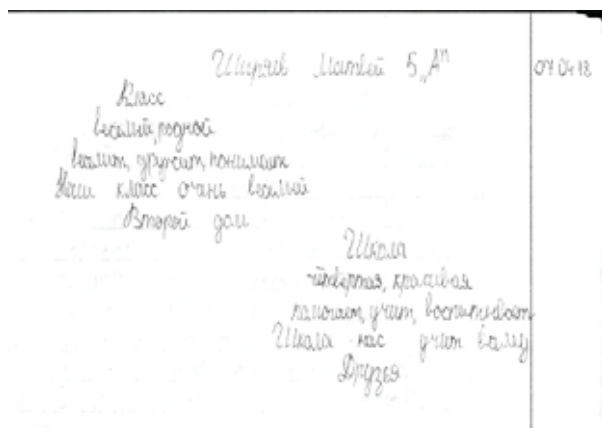 Ширяев Матвей 5 „А" 07.04.18
Класс
весёлый, родной
веселит, дружит, понимает
Наш класс очень весёлый
Второй дом
Школа
четвёртая, красивая
помогает, учит, воспитывает
Школа нас учит всему
Друзья